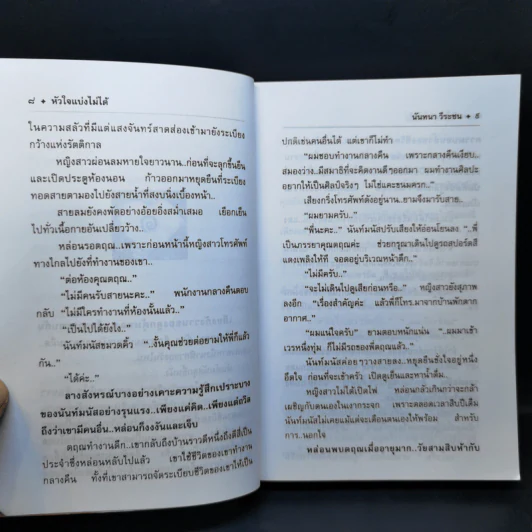 ๘ ✦ หัวใจแบ่งไม่ได้
ในความสลัวที่มีแต่แสงจันทร์สาดส่องเข้ามายังระเบียง
กว้างแห่งรัตติกาล
หญิงสาวผ่อนลมหายใจยาวนาน..ก่อนที่จะลุกขึ้นยืน
และเปิดประตูห้องนอน ก้าวออกมาหยุดยืนที่ระเบียง
ทอดสายตามองไปยังสายน้ำที่สงบนิ่งเบื้องหน้า..
สายลมยังคงพัดอย่างอ้อยอิ่งสม่ำเสมอ เยือกเย็น
ไปทั่วเนื้อกายอันเปลี่ยวว้าง..
หล่อนรอดฤณ..เพราะก่อนหน้านี้หญิงสาวโทรศัพท์
ทางไกลไปยังที่ทำงานของเขา..
“ต่อห้องคุณดฤณ..”
“ไม่มีคนรับสายนะคะ..” พนักงานกลางคืนตอบ
กลับ “ไม่มีใครทำงานที่ห้องนั้นแล้ว..”
“เป็นไปได้ยังไง..”
นันท์มนัสขมวดคิ้ว “..งั้นคุณช่วยต่อยามให้พี่ก็แล้ว
กัน..”
“ได้ค่ะ..”
ลางสังหรณ์บางอย่างเคาะความรู้สึกเปราะบาง
ของนันท์มนัสอย่างรุนแรง..เพียงแค่คิด..เพียงแต่อวิด
ถึงว่าเขามีคนอื่น..หล่อนก็งงงันและเจ็บ
ดฤณทำงานดึก..เขากลับถึงบ้านราวตีหนึ่งถึงตีสี่เป็น
ประจำซึ่งหล่อนหลับไปแล้ว เขาใช้ชีวิตของเขาทำงาน
กลางคืน ทั้งที่เขาสามารถจัดระเบียบชีวิตของเขาให้เป็น
นันทนา วีระชน ✦ ๙
ปกติเช่นคนอื่นได้ แต่เขาก็ไม่ทำ
“ผมชอบทำงานกลางคืน เพราะกลางคืนเงียบ..
สมองว่าง..มีสมาธิที่จะคิดงานดีๆออกมา ผมทำงานศิลปะ
อยากให้เป็นศิลป์จริงๆ ไม่ใช่แคะขนมครก”
เสียงกริ่งโทรศัพท์ดังอยู่นาน..ยามจึงมารับสาย..
“ผมยามครับ”
“พี่นะคะ..” นันท์มนัสปรับเสียงให้อ่อนโยนลง “..พี่
เป็นภรรยาคุณดฤณค่ะ ช่วยกรุณาเดินไปดูรถสปอร์ตสี
แดงเพลิงให้ที จอดอยู่บริเวณหน้าตึก..”
“ไม่มีครับ..”
“จะไม่เดินไปดูเสียก่อนหรือ..” หญิงสาวยังสุภาพ
ลงอีก “เรื่องสำคัญค่ะ แล้วพี่ก็โทร.มาจากบ้านพักตาก
อากาศ..”
“ผมแน่ใจครับ” ยามตอบหนักแน่น “..ผมมาเข้า
เวรหนึ่งทุ่ม ก็ไม่มีรถของพี่ดฤณแล้ว..”
นันท์มนัสค่อยๆวางสายลง..หยุดยืนชั่งใจอยู่หนึ่ง
อึดใจ ก่อนที่จะเข้าครัว เปิดตู้เย็นและหาน้ำดื่ม..
หญิงสาวไม่ได้เปิดไฟ หล่อนกลัวเกินกว่าจะกล้า
เผชิญกับตนเองในเงากระจก เพราะตลอดเวลาสิบปีเต็ม
นันท์มนัสไม่เคยแม้แต่จะเตือนตนเองให้พร้อม สำหรับ
การ..นอกใจ
หล่อนพบดฤณเมื่ออายุมาก..วัยสามสิบห้ากับ